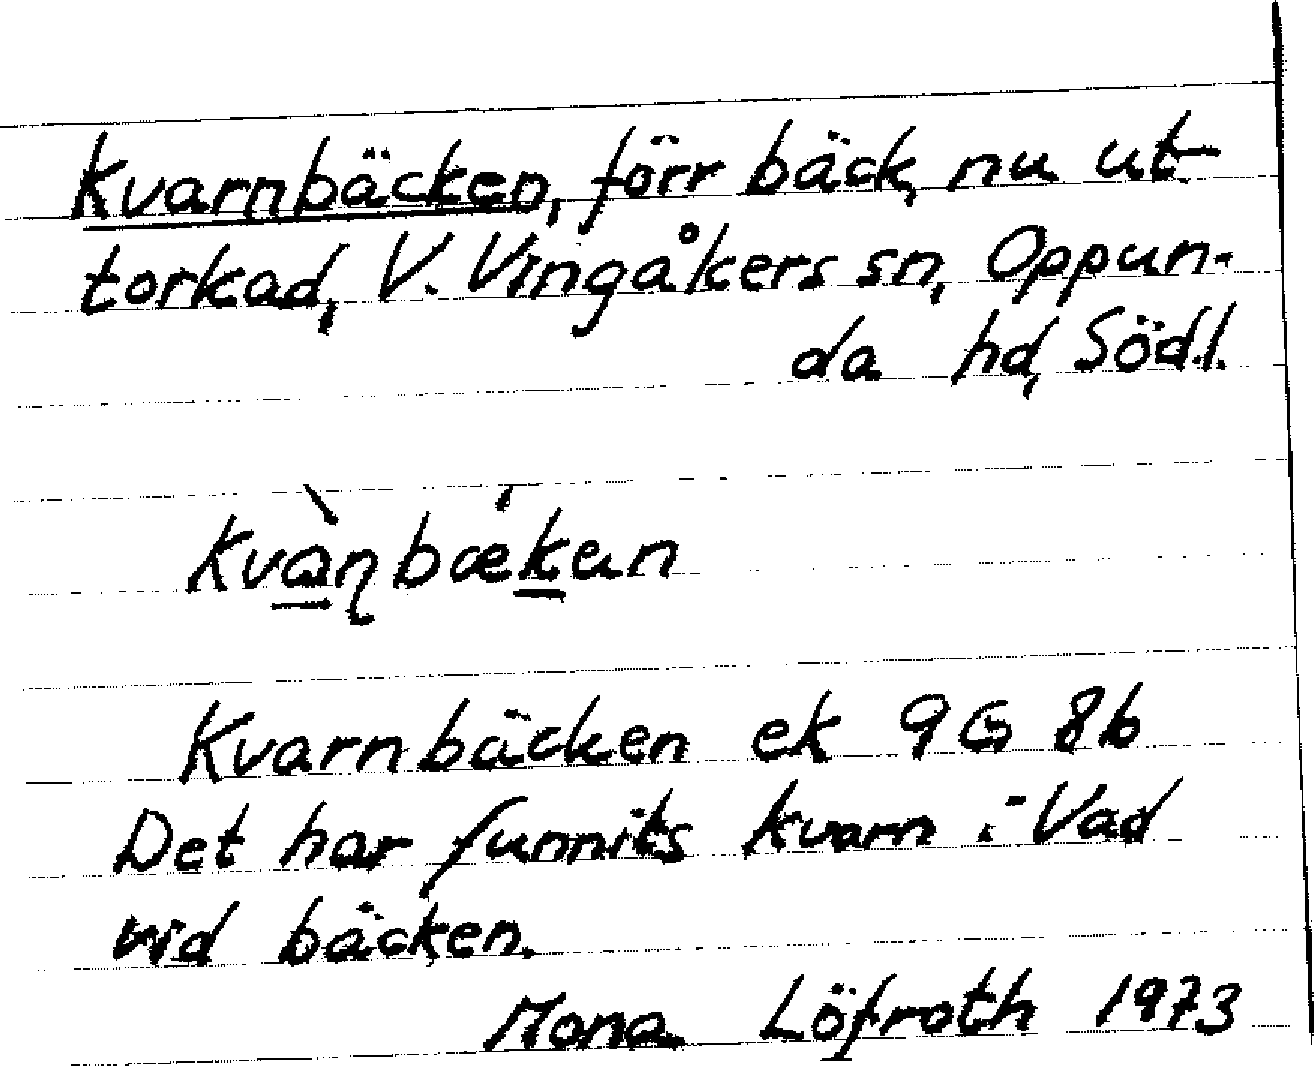 Kvarnbäcken, förr bäck, nu ut-
torkad, V. Vingåkers sn, Oppun-
da hd, Södl.
Kvàɳbækan
Kvarnbäcken ek 9G 8b
Det har funnits kvarn i Vad
vid bäcken.
Mona Löfroth 1973